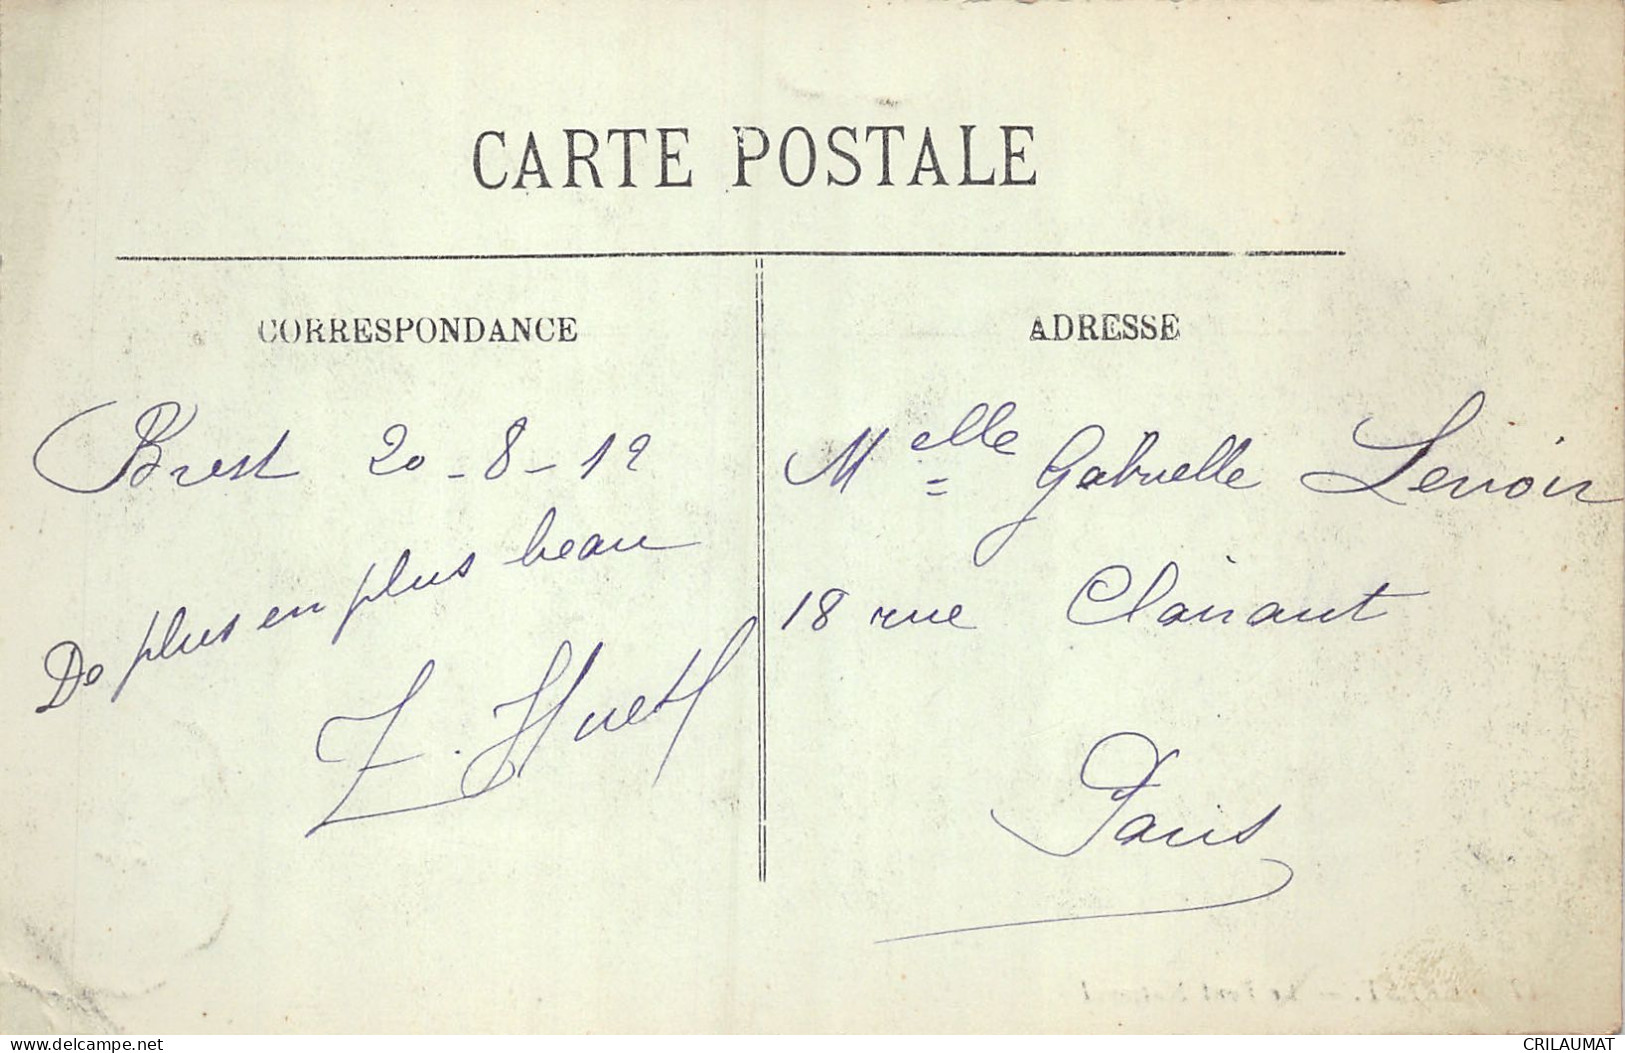 CARTE POSTALE
CORRESPONDANCE
Brest 20-8-12
De plus en plus beau
Z. Huet
ADRESSE
Melle Gabrielle Lenoir
18 rue Clairaut
Paris
www.delcampe.net
CRILAUMAT